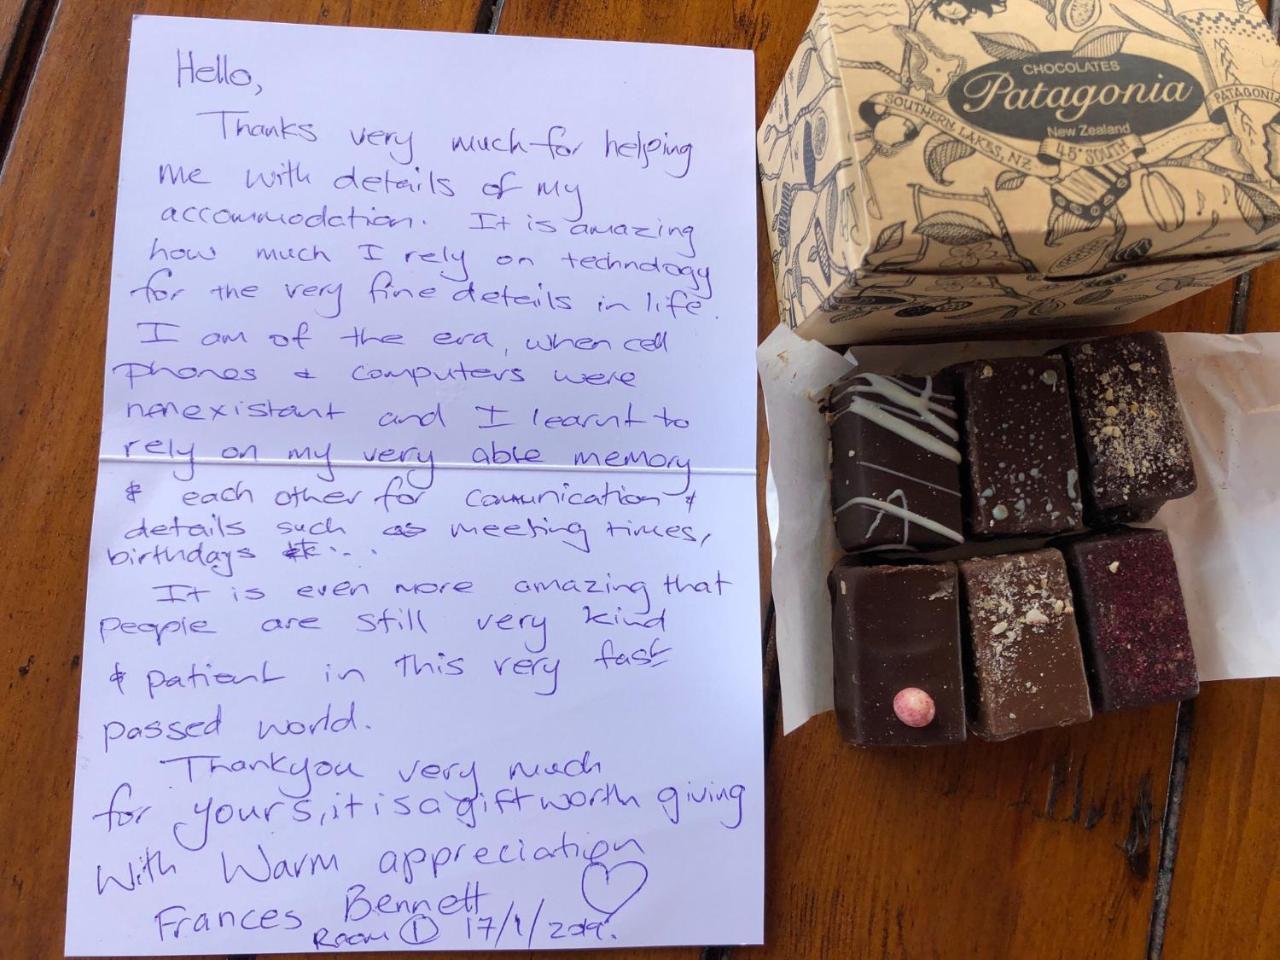 Hello,
Thanks very much for helping
me with details of my
accommodation. It is amazing
how much I rely on technology
for the very fine details in life.
I am of the era, when cell
phones & computers were
nonexistant and I learnt to
rely on my very able memory
& each other for comunication &
details such as meeting times,
birthdays etc...
It is even more amazing that
people are still very kind
& patient in this very fast
passed world.
Thankyou very much
for yours, it is a gift worth giving
With Warm appreciation
Frances Bennett
Room 1 17/1/2019.
CHOCOLATES
Patagonia
New Zealand
SOUTHERN LAKES, NZ
45° SOUTH
PATAGONIA